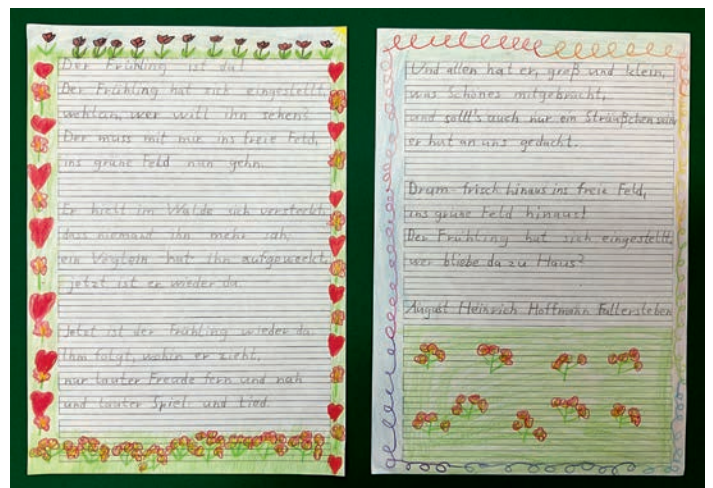 Der Frühling ist da!
Der Frühling hat sich eingestellt
wohlan, wer will ihn sehen?
Der muss mit mir ins freie Feld,
ins grüne Feld nun gehn.
Er hielt im Walde sich versteckt,
dass niemand ihn mehr sah;
ein Vöglein hat ihn aufgeweckt,
jetzt ist er wieder da.
Jetzt ist der Frühling wieder da.
Ihm folgt, wohin er zieht,
nur lauter Freude fern und nah
und lauter Spiel und Lied.
Und allen hat er, groß und klein,
was Schönes mitgebracht,
und sollt's auch nur ein Sträußchen sein
er hat an uns gedacht.
Drum frisch hinaus ins freie Feld,
ins grüne Feld hinaus!
Der Frühling hat sich eingestellt,
wer bliebe da zu Haus?
August Heinrich Hoffmann Fallersleben